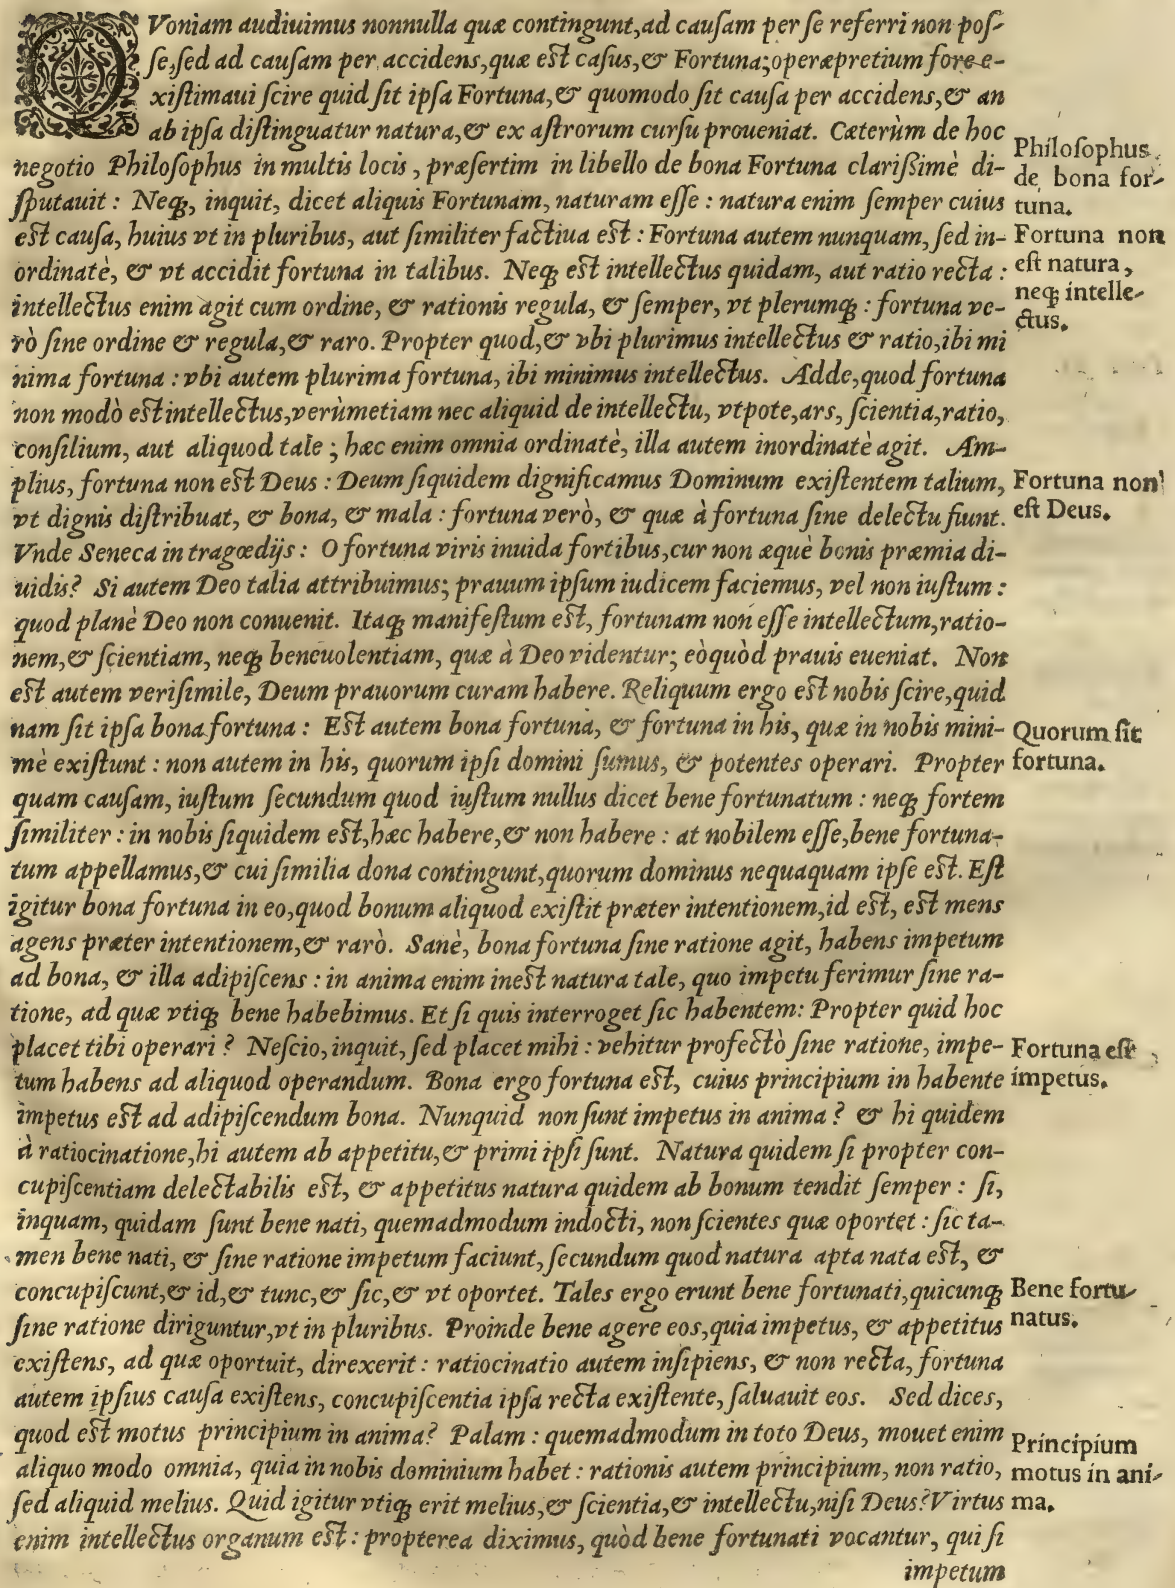 QVoniam audiuimus nonnulla quæ contingunt, ad cauſam per ſe referri non poſ-
ſe, ſed ad cauſam per accidens, quæ eſt caſus, & Fortuna; operæpretium fore e-
xiſtimaui ſcire quid ſit ipſa Fortuna, & quomodo ſit cauſa per accidens, & an
ab ipſa diſtinguatur natura, & ex aſtrorum curſu proueniat. Cæterùm de hoc
negotio Philoſophus in multis locis, præſertim in libello de bona Fortuna clariſſimè di-
ſputauit: Neqꝫ, inquit, dicet aliquis Fortunam, naturam eſſe: natura enim ſemper cuius
eſt cauſa, huius vt in pluribus, aut ſimiliter factiua eſt: Fortuna autem nunquam, ſed in-
ordinatè, & vt accidit fortuna in talibus. Neqꝫ eſt intellectus quidam, aut ratio recta:
intellectus enim agit cum ordine, & rationis regula, & ſemper, vt plerumqꝫ: fortuna ve-
rò ſine ordine & regula, & raro. Propter quod, & vbi plurimus intellectus & ratio, ibi mi
nima fortuna: vbi autem plurima fortuna, ibi minimus intellectus. Adde, quod fortuna
non modò eſt intellectus, verùmetiam nec aliquid de intellectu, vtpote, ars, ſcientia, ratio,
conſilium, aut aliquod tale; hæc enim omnia ordinatè, illa autem inordinatè agit. Am-
plius, fortuna non eſt Deus: Deum ſiquidem dignificamus Dominum exiſtentem talium,
vt dignis diſtribuat, & bona, & mala: fortuna verò, & quæ à fortuna ſine delectu fiunt.
Vnde Seneca in tragœdijs: O fortuna viris inuida fortibus, cur non æquè bonis præmia di-
uidis? Si autem Deo talia attribuimus; prauum ipſum iudicem faciemus, vel non iuſtum:
quod planè Deo non conuenit. Itaqꝫ manifeſtum eſt, fortunam non eſſe intellectum, ratio-
nem, & ſcientiam, neqꝫ beneuolentiam, quæ à Deo videntur; eòquòd prauis eueniat. Non
eſt autem veriſimile, Deum prauorum curam habere. Reliquum ergo eſt nobis ſcire, quid
nam ſit ipſa bona fortuna: Eſt autem bona fortuna, & fortuna in his, quæ in nobis mini-
mè exiſtunt: non autem in his, quorum ipſi domini ſumus, & potentes operari. Propter
quam cauſam, iuſtum ſecundum quod iuſtum nullus dicet bene fortunatum: neqꝫ fortem
ſimiliter: in nobis ſiquidem eſt, hæc habere, & non habere: at nobilem eſſe, bene fortuna-
tum appellamus, & cui ſimilia dona contingunt, quorum dominus nequaquam ipſe eſt. Eſt
igitur bona fortuna in eo, quod bonum aliquod exiſtit præter intentionem, id eſt, eſt mens
agens præter intentionem, & rarò. Sanè, bona fortuna ſine ratione agit, habens impetum
ad bona, & illa adipiſcens: in anima enim ineſt natura tale, quo impetu ferimur ſine ra-
tione, ad quæ vtiqꝫ bene habebimus. Et ſi quis interroget ſic habentem: Propter quid hoc
placet tibi operari? Neſcio, inquit, ſed placet mihi: vehitur profectò ſine ratione, impe-
tum habens ad aliquod operandum. Bona ergo fortuna eſt, cuius principium in habente
impetus eſt ad adipiſcendum bona. Nunquid non ſunt impetus in anima? & hi quidem
à ratiocinatione, hi autem ab appetitu, & primi ipſi ſunt. Natura quidem ſi propter con-
cupiſcentiam delectabilis eſt, & appetitus natura quidem ab bonum tendit ſemper: ſi,
inquam, quidam ſunt bene nati, quemadmodum indocti, non ſcientes quæ oportet: ſic ta-
men bene nati, & ſine ratione impetum faciunt, ſecundum quod natura apta nata eſt, &
concupiſcunt, & id, & tunc, & ſic, & vt oportet. Tales ergo erunt bene fortunati, quicunqꝫ
ſine ratione diriguntur, vt in pluribus. Proinde bene agere eos, quia impetus, & appetitus
exiſtens, ad quæ oportuit, direxerit: ratiocinatio autem inſipiens, & non recta, fortuna
autem ipſius cauſa exiſtens, concupiſcentia ipſa recta exiſtente, ſaluauit eos. Sed dices,
quod eſt motus principium in anima? Palam: quemadmodum in toto Deus, mouet enim
aliquo modo omnia, quia in nobis dominium habet: rationis autem principium, non ratio,
ſed aliquid melius. Quid igitur vtiqꝫ erit melius, & ſcientia, & intellectu, niſi Deus? Virtus
enim intellectus organum eſt: propterea diximus, quòd bene fortunati vocantur, qui ſi
impetum
Philoſophus
de bona for-
tuna.
Fortuna non
eſt natura,
neqꝫ intelle-
ctus.
Fortuna non
eſt Deus.
Quorum ſit
fortuna.
Fortuna eſt
impetus.
Bene fortu-
natus.
Principium
motus in ani-
ma.